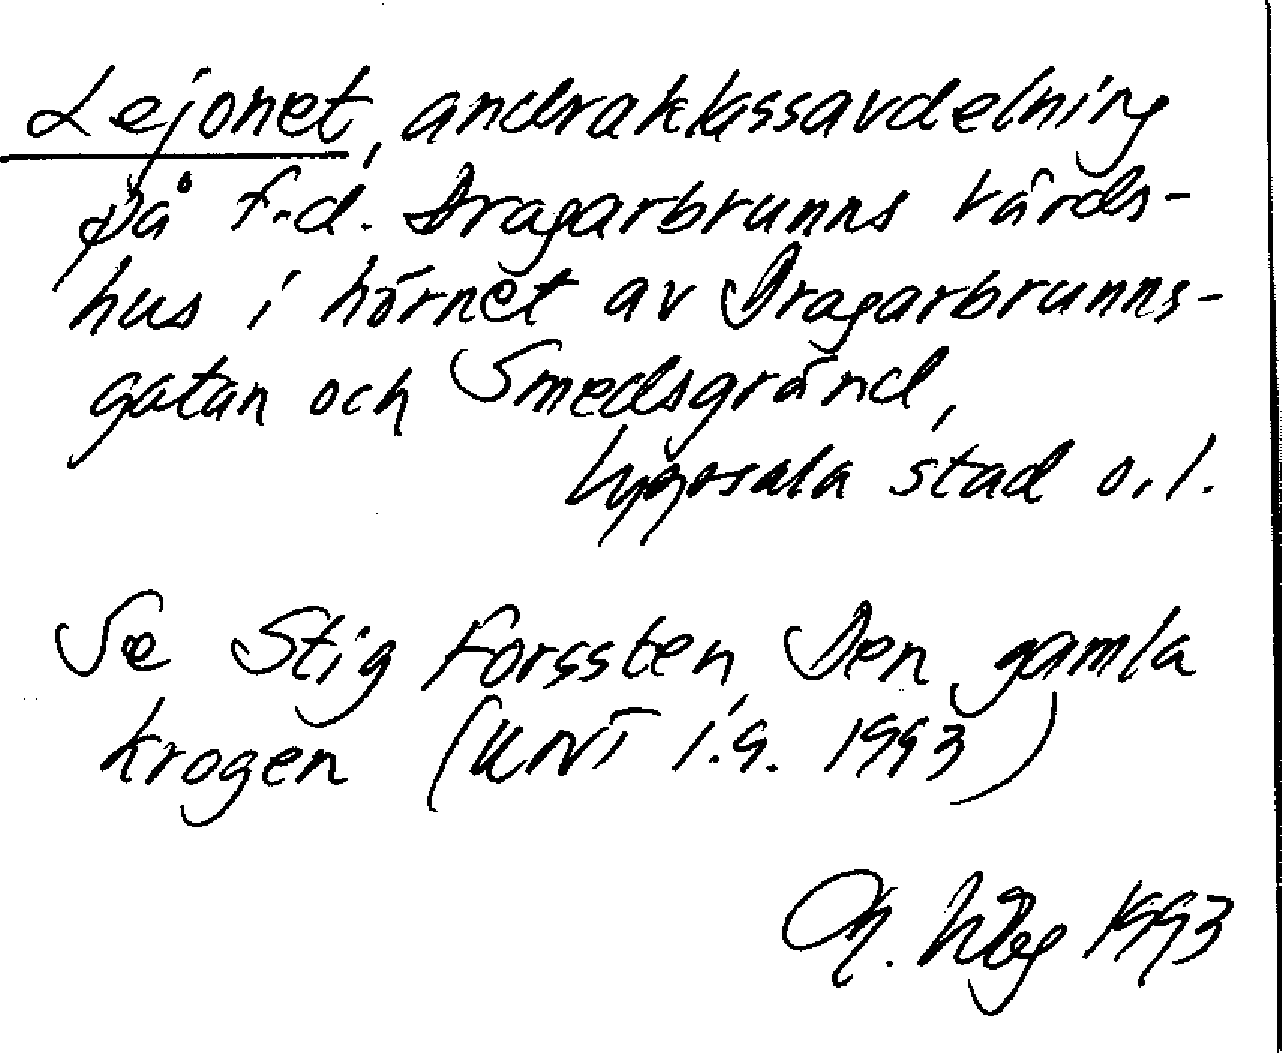 Lejonet, andraklassavdelning
på f.d. Dragarbrunns värds-
hus i hörnet av Dragarbrunns-
gatan och Smedsgränd,
Uppsala stad o.l.
Se Stig Forssten, Den gamla
krogen (UNT 1.9. 1993)
M. 1993